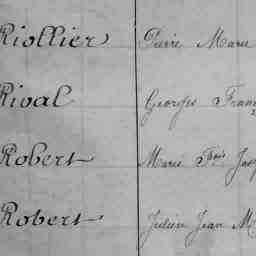 Riollier Pierre Marie
Rival Georges Fran
Robert Marie Fois Jos
Robert Julien Jean M